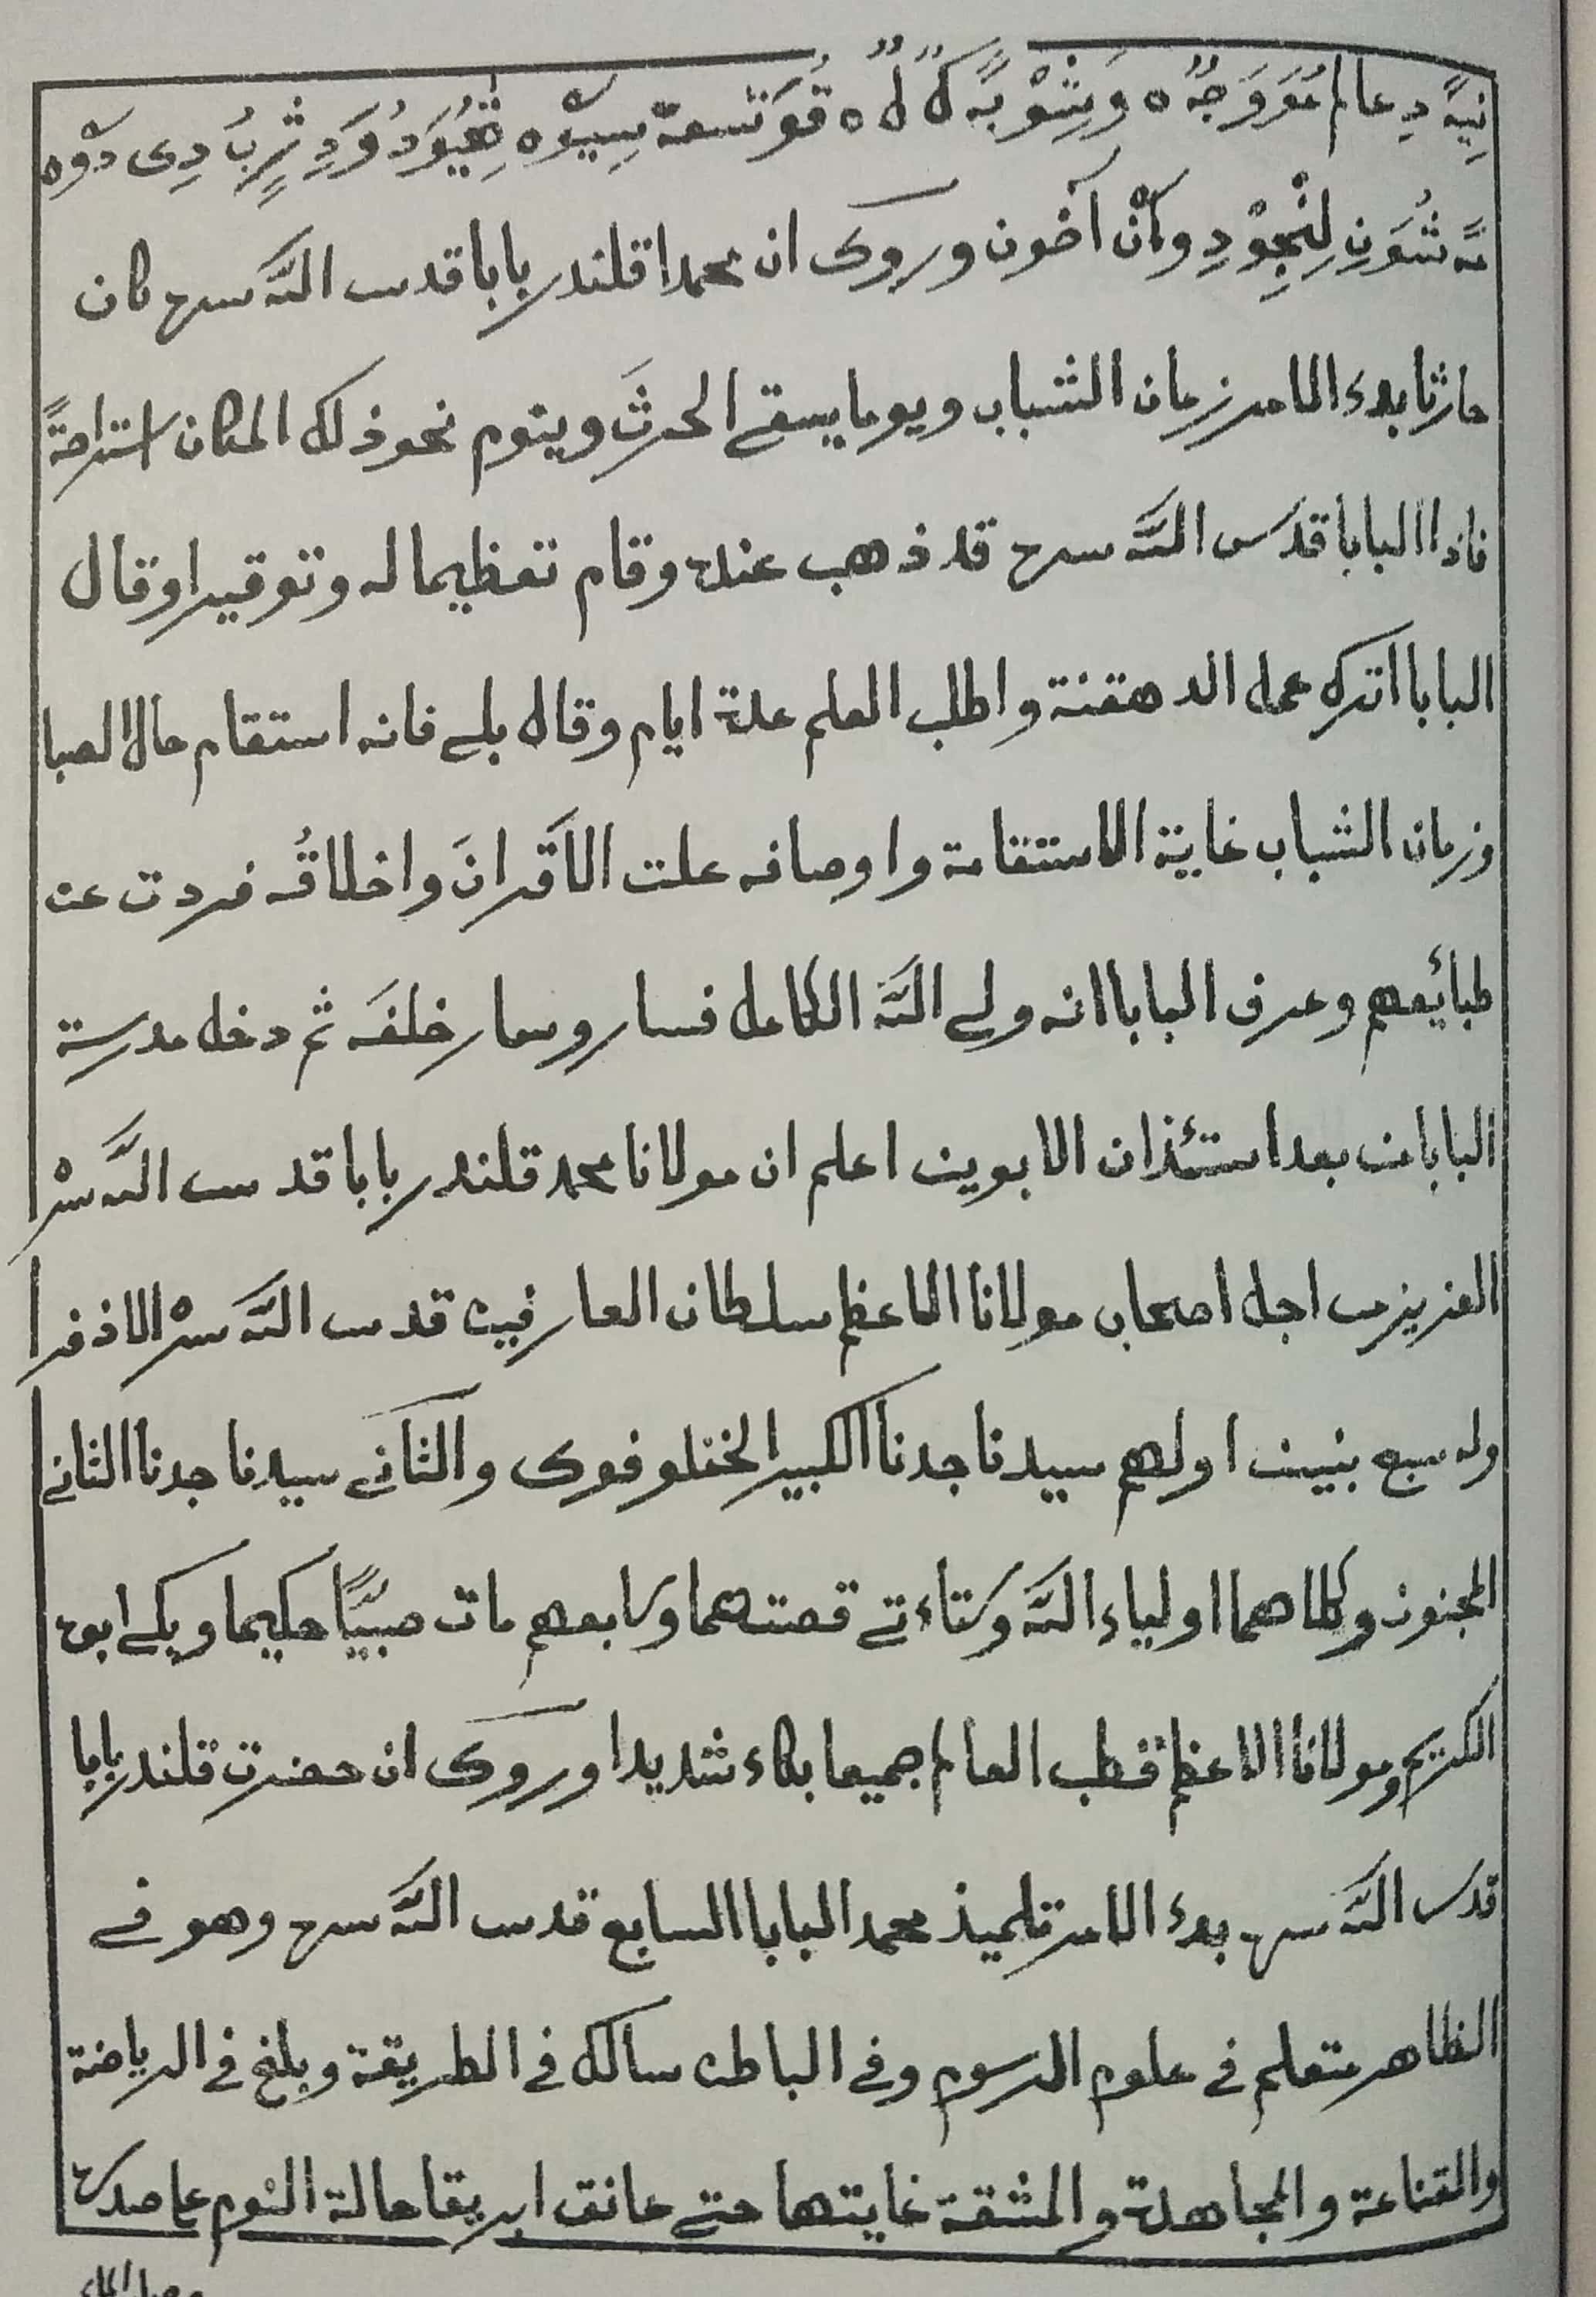 نِيَةً دِعالم مُعَرَوَجُہْ ه وَيِثِوْبَةً
مَّه شُوَنِ لِنْجِوْدِ وكأن آخون وروى ان محمدا قلندر بابا قدس اللّه سره كان
حارثا بدء الامر زمان الشباب ويوما يسقے الحرثَ وينوم نحو ذلك المكان استراحةً
فاذا البابا قدَس اللَّه سره قد ذهب عنده وقام تعظيما له وتوقيرا وقال
البابا اترك عمل الدهقنة واطلب العلم عدة ايام وقال بلے فانه استقام حال الصبا
وزمان الشباب غاية الاستقامة واوصافه علت الاَقرانَ واخلاقُه فردت عن
طبائعهم وعرف البابا انه ولے اللَّه الكامل فسار وسار خلفَه ثم دخل مدرسة
البابا من بعد استئذان الابوين اعلم ان مولانا محمد قلندر بابا قدس اللَّه سرّ
العزيز من اجل اصحاب مولانا الاعظم سلطان العارفين قدس اللَّه سرّ الاذفر
وله سبع بنين اولهم سيدنا جدنا الكبير الختلوفوى والثانے سيدنا جدنا الثانے
المجنون وكلاهما اولياء اللَّه وستاءتے قصتهما ورابعهم مات صبيًّا حكيما وبكے ابوه
الكريم ومولانا الاعظم قطب العالم جميعا بكاء شديدا وروى ان حضرت قلندر بابا
قدَس اللَّه سره بدء الامر تلميذ محمد البابا السابع قدس اللَّه سره وهو فے
الظاهر متعلم فى علوم الرسوم وفى الباطن سالك فى الطريقة وبلغ فى الرياضة
والقناعة والمجاهدة والمشقة غايتها حتے عانق ابريقا حالة النوم عا صدره